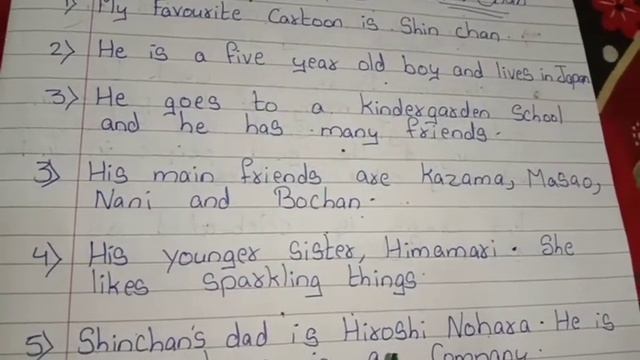 1) My Favourite Cartoon is Shin chan.
2) He is a five year old boy and lives in Japan
3) He goes to a kindergarden School
and he has many friends.
3) His main friends are Kazama, Masao,
Nani and Bochan.
4) His younger Sister, Himamari. She
likes sparkling things.
5) Shinchan's dad is Hiroshi Nohara. He is
a Company.